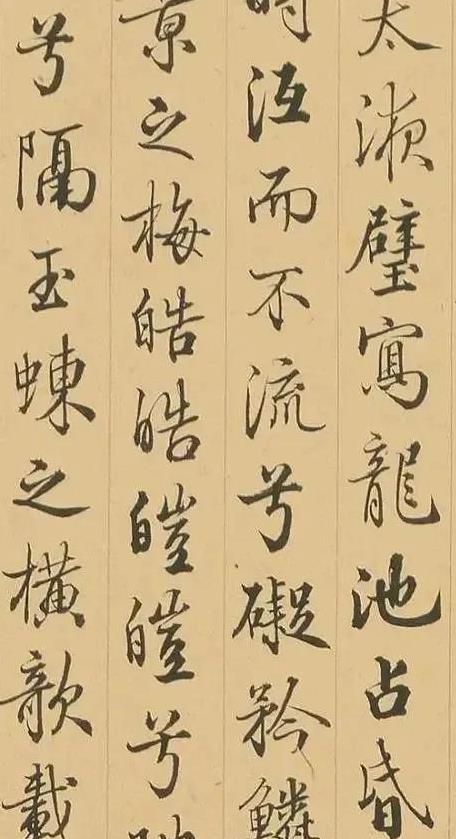 太液璧寫龍池占昏
時沍而不流兮礙矜鱗
京之梅皓皓皚皚兮
兮隔玉蝀之橫歌載